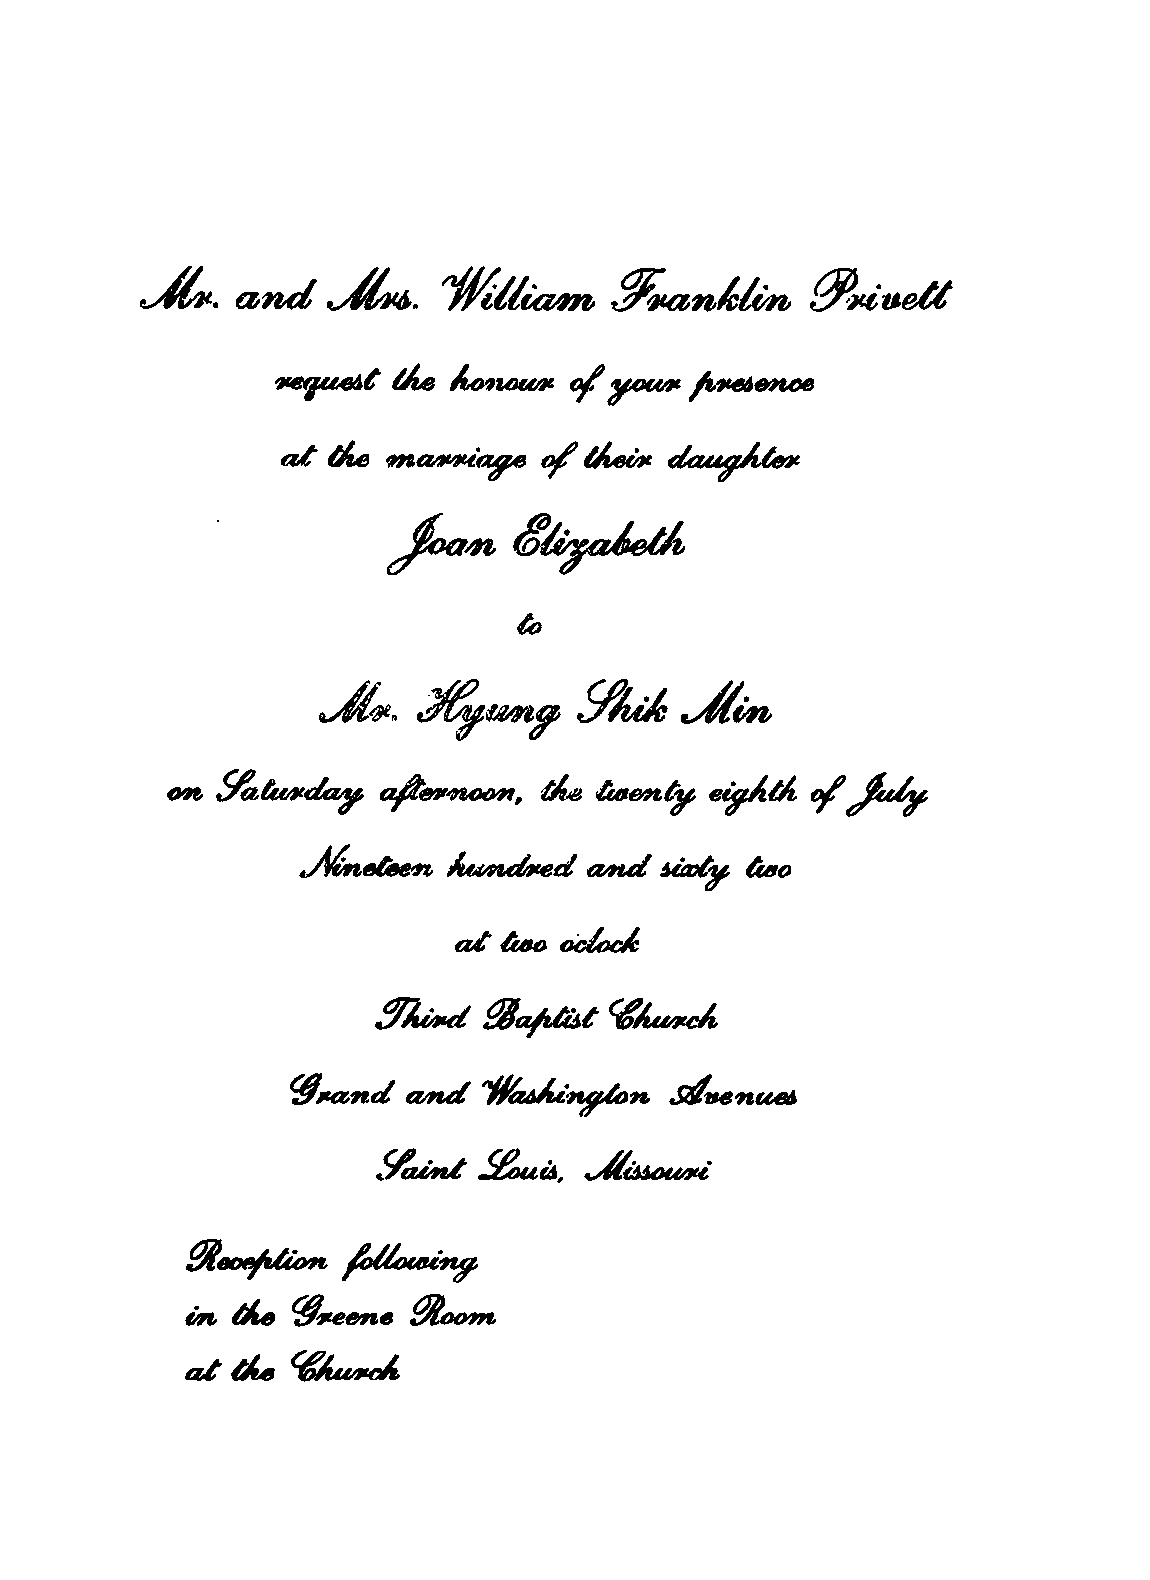 Mr. and Mrs. William Franklin Privett
request the honour of your presence
at the marriage of their daughter
Joan Elizabeth
to
Mr. Hyung Shik Min
on Saturday afternoon, the twenty eighth of July
Nineteen hundred and sixty two
at two o'clock
Third Baptist Church
Grand and Washington Avenues
Saint Louis, Missouri
Reception following
in the Greene Room
at the Church